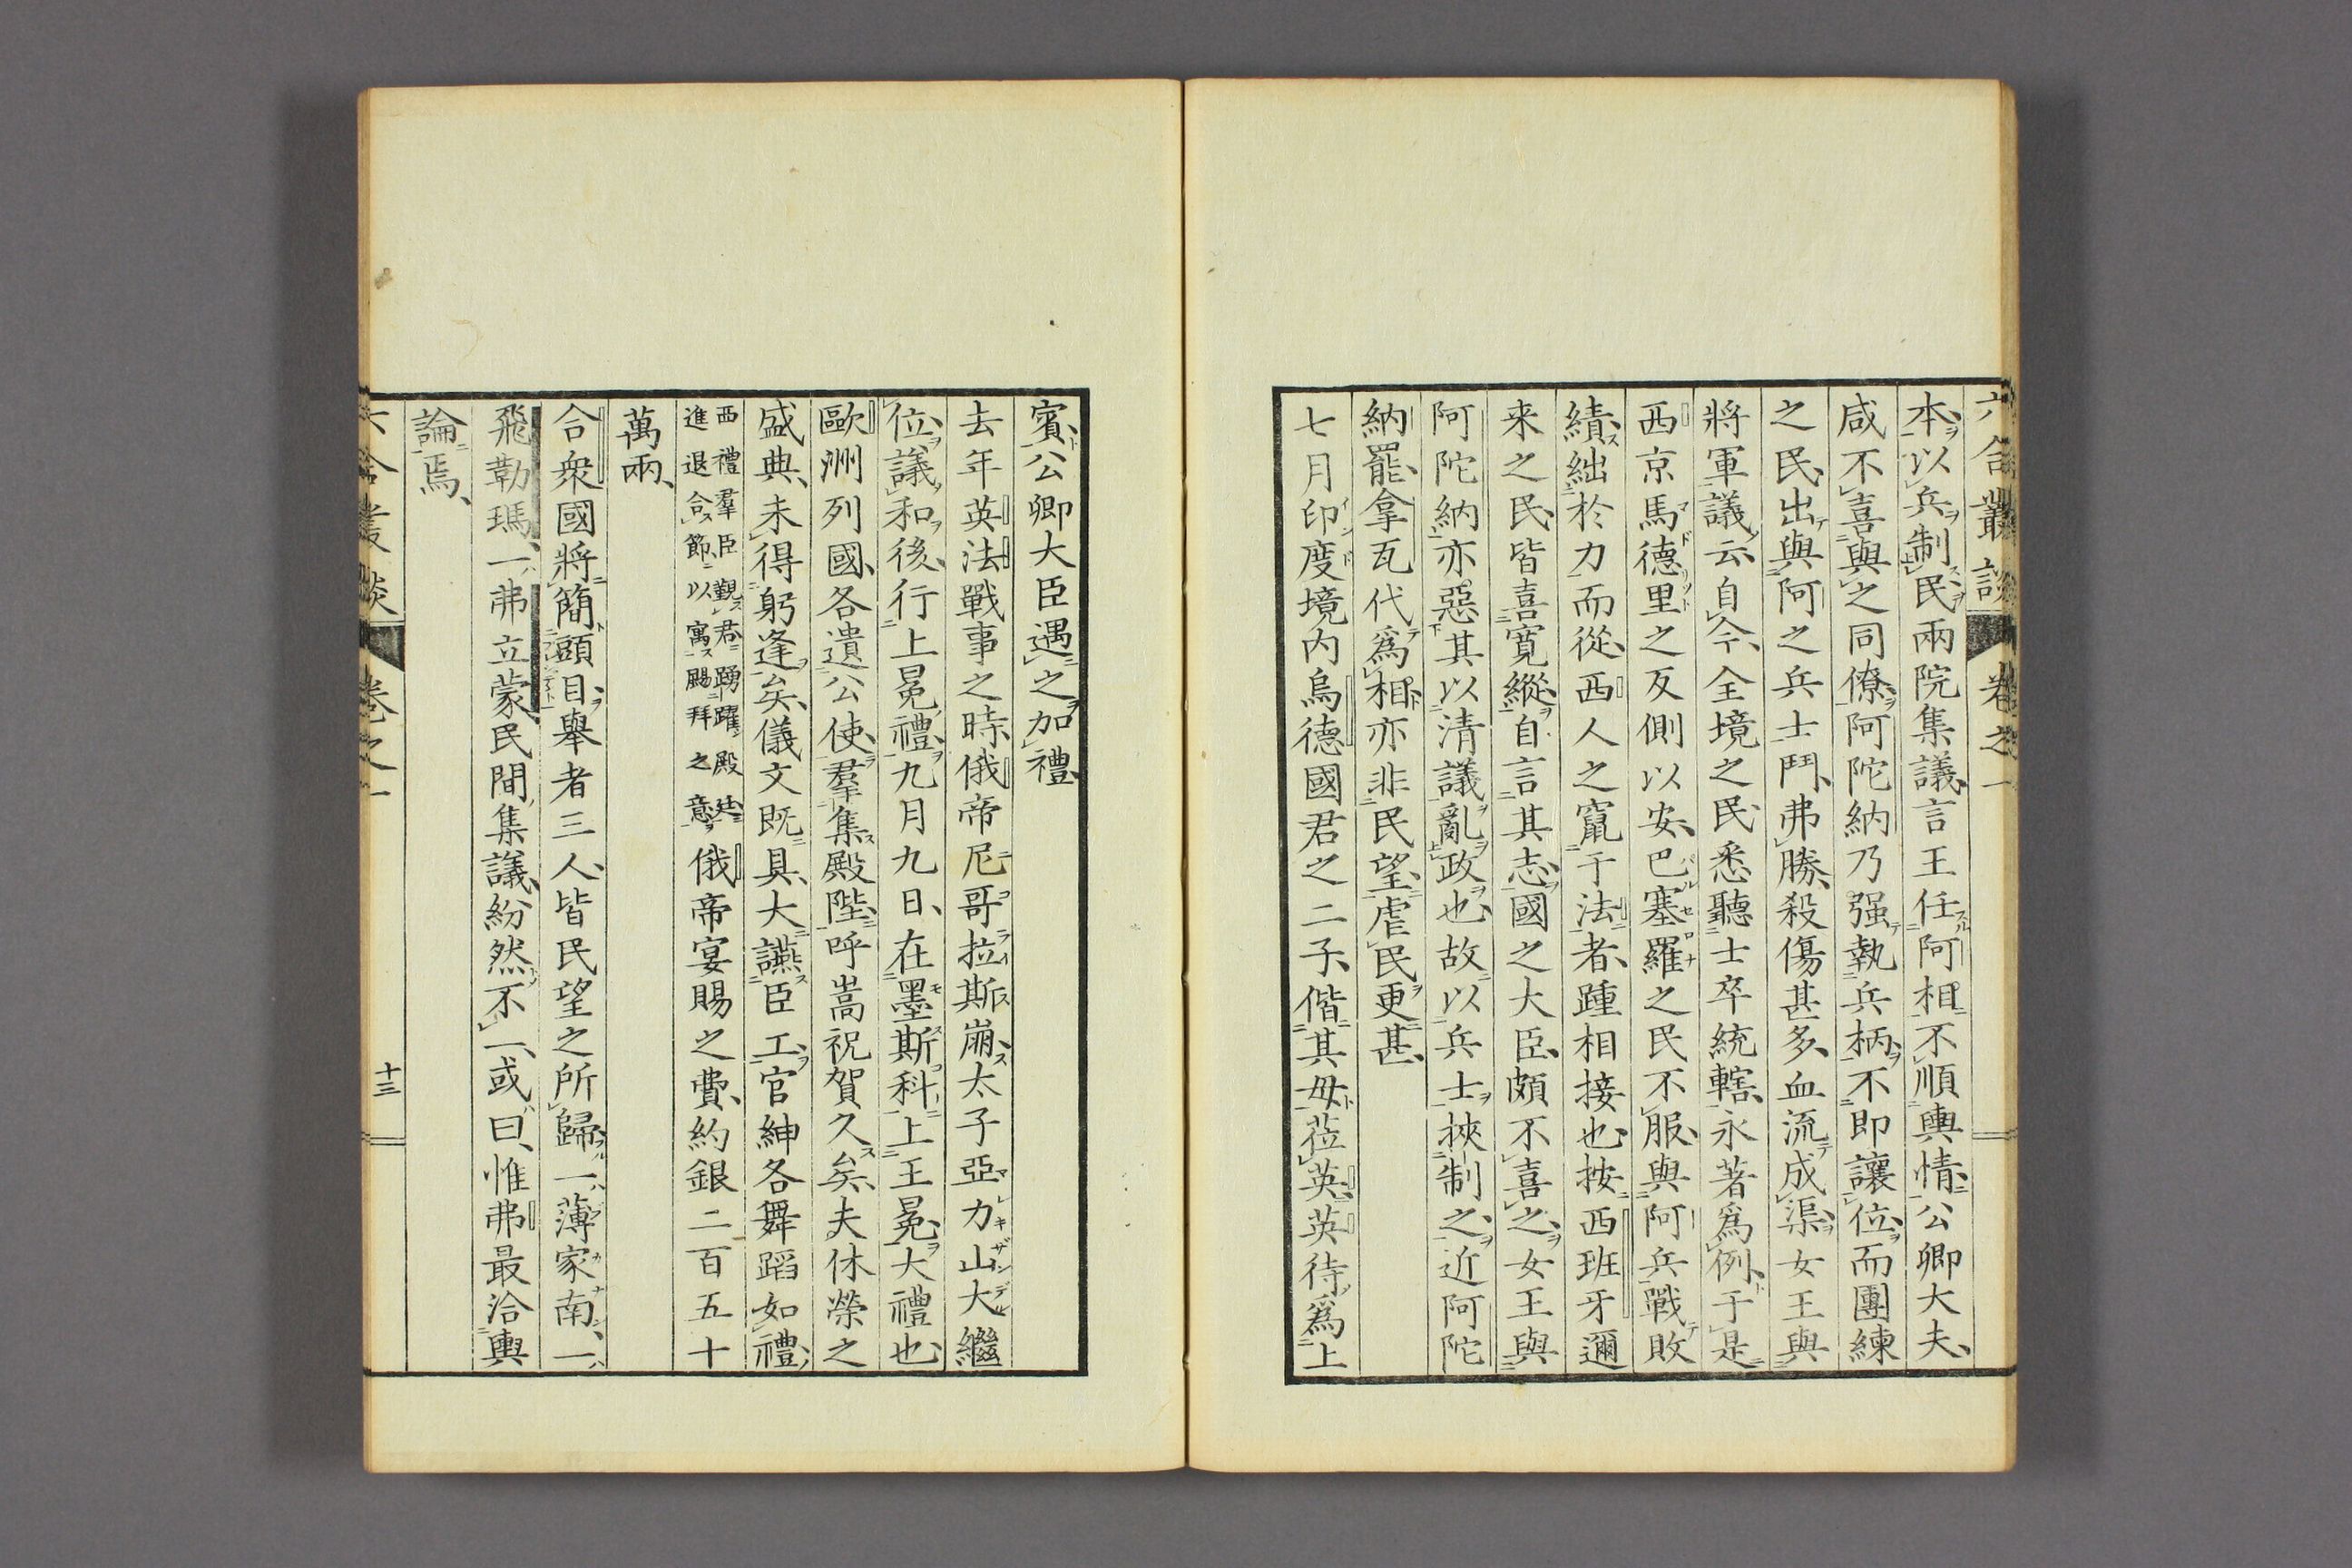 六合叢談 卷之一
本以兵制民兩院集議言王任阿相不順輿情公卿大夫
咸不喜與之同僚阿陀納乃强執兵柄不即讓位而團練
之民出與阿之兵士鬥弗勝殺傷甚多血流成渠女王與
將軍議云自今全境之民悉聽士卒統轄永著爲例于是
西京馬德里之反側以安巴塞羅之民不服與阿兵戰敗
績絀於力而從西人之竄于法者踵相接也按西班牙邇
来之民皆喜寛縱自言其志國之大臣頗不喜之女王與
阿陀納亦惡其以清議亂政也故以兵士挾制之近阿陀
納罷拿瓦代爲相亦非民望虐民更甚
七月印度境内烏德國君之二子偕其母莅英英待爲上
賓公卿大臣遇之加禮
去年英法戰事之時俄帝尼哥拉斯崩太子亞力山大繼
位議和後行上冕禮九月九日在墨斯科上王冕大禮也
歐洲列國各遺公使羣集殿陛呼嵩祝賀久矣夫休榮之
盛典未得躬逢矣儀文既具大讌臣工官紳各舞蹈如禮
西禮羣臣覲君踴躍殿廷
進退合節以寓賜拜之意
俄帝宴賜之費約銀二百五十
萬兩
合衆國將簡頭目舉者三人皆民望之所歸一薄家南一
飛勒瑪一弗立蒙民間集議紛然不一或曰惟弗最洽輿
論焉
六合叢談 卷之一 十三